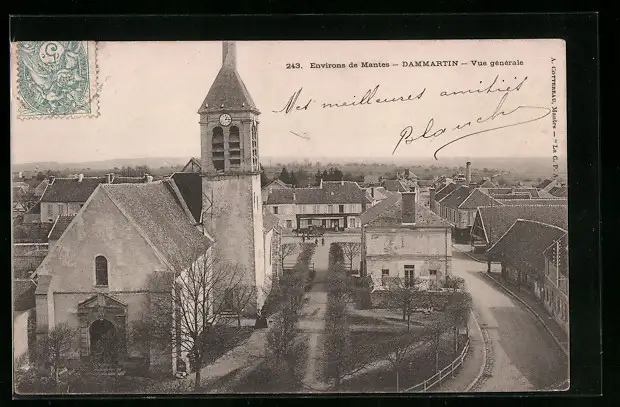 243. Environs de Mantes — DAMMARTIN — Vue générale
Mes meilleures amitiés
Blanche